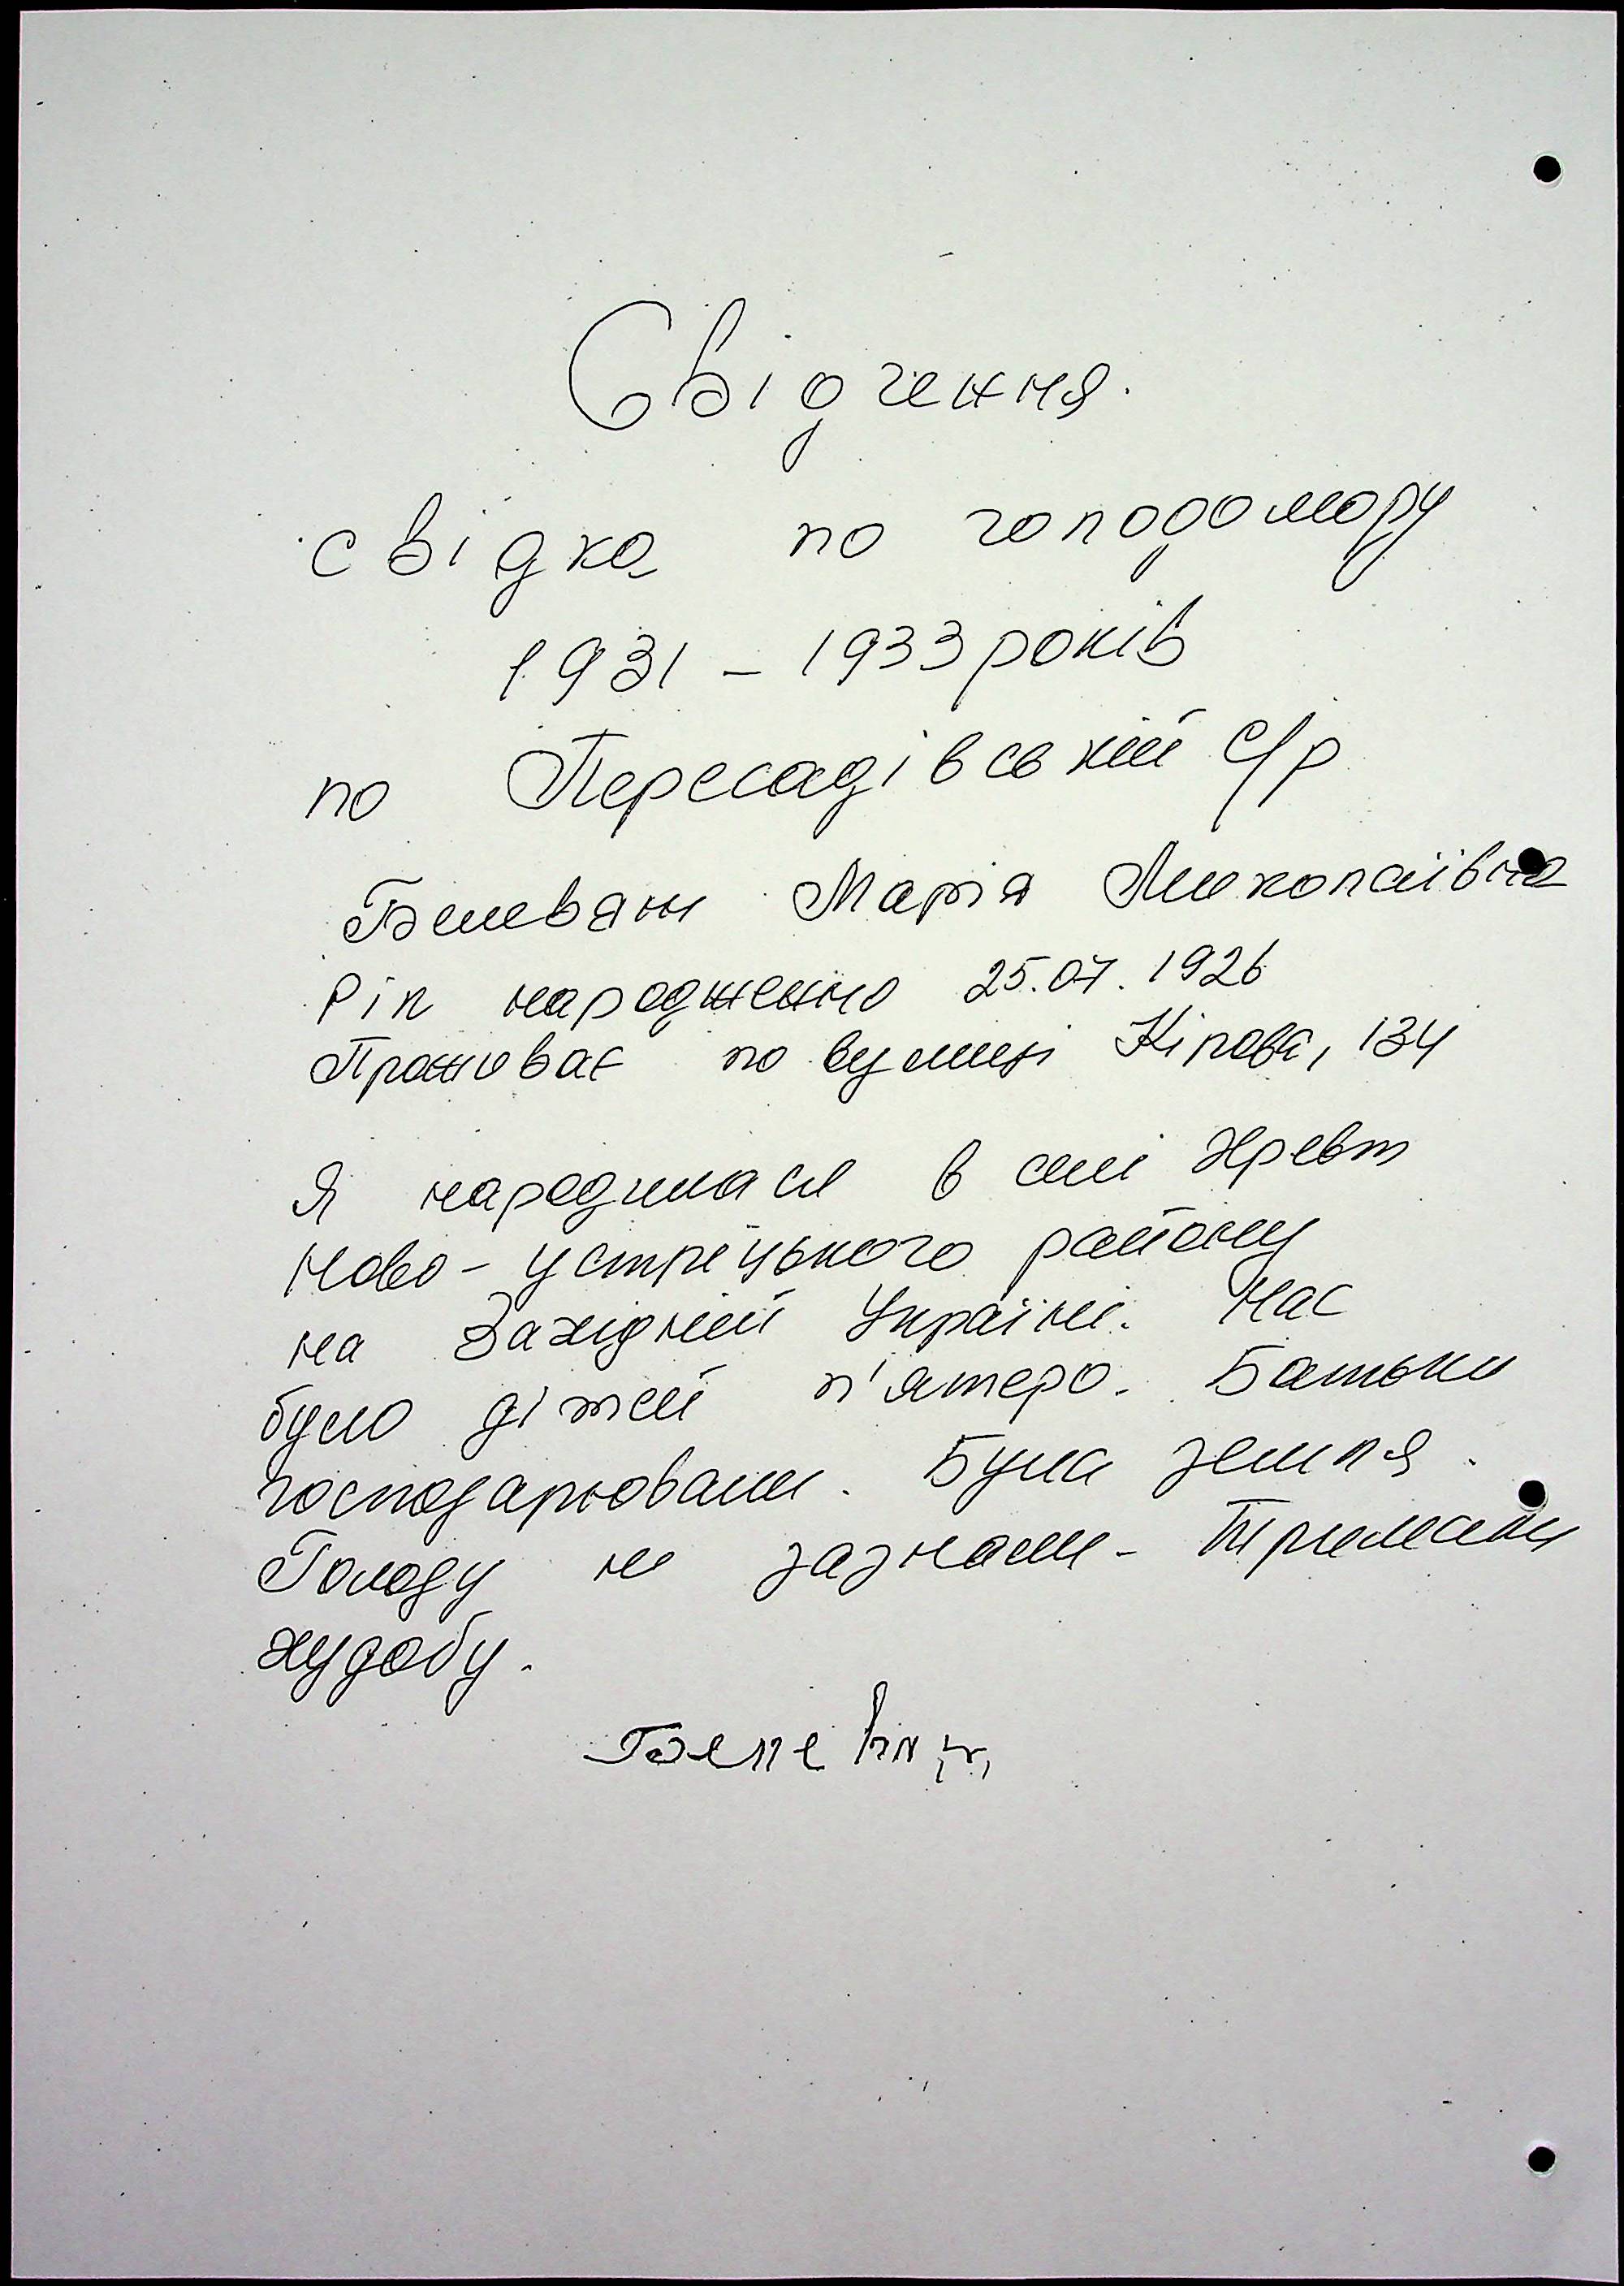 Свідчення.
свідка по голодомору
1931 - 1933 років
по Пересадівській с/р
Марія Миколаївна
Рік народження 25.07.1926
Проживає по вулиці Кірова, 134
Я народилася в селі Хревт
Ново-устріцького району
на Західній Україні. Нас
було дітей п'ятеро. Батьки
господарювали. Була земля.
Голоду не зазнали - Тримали
худобу.